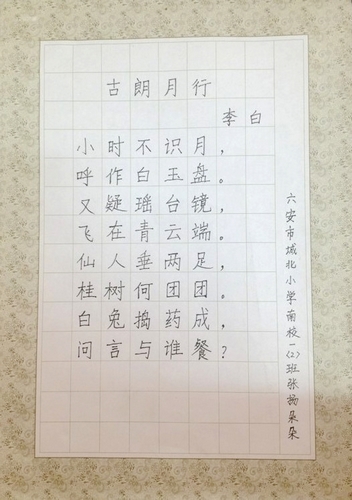 古朗月行
李白
小时不识月，
呼作白玉盘。
又疑瑶台镜，
飞在青云端。
仙人垂两足，
桂树何团团。
白兔捣药成，
问言与谁餐？
六安市城北小学南校一（2）班张扬朵朵